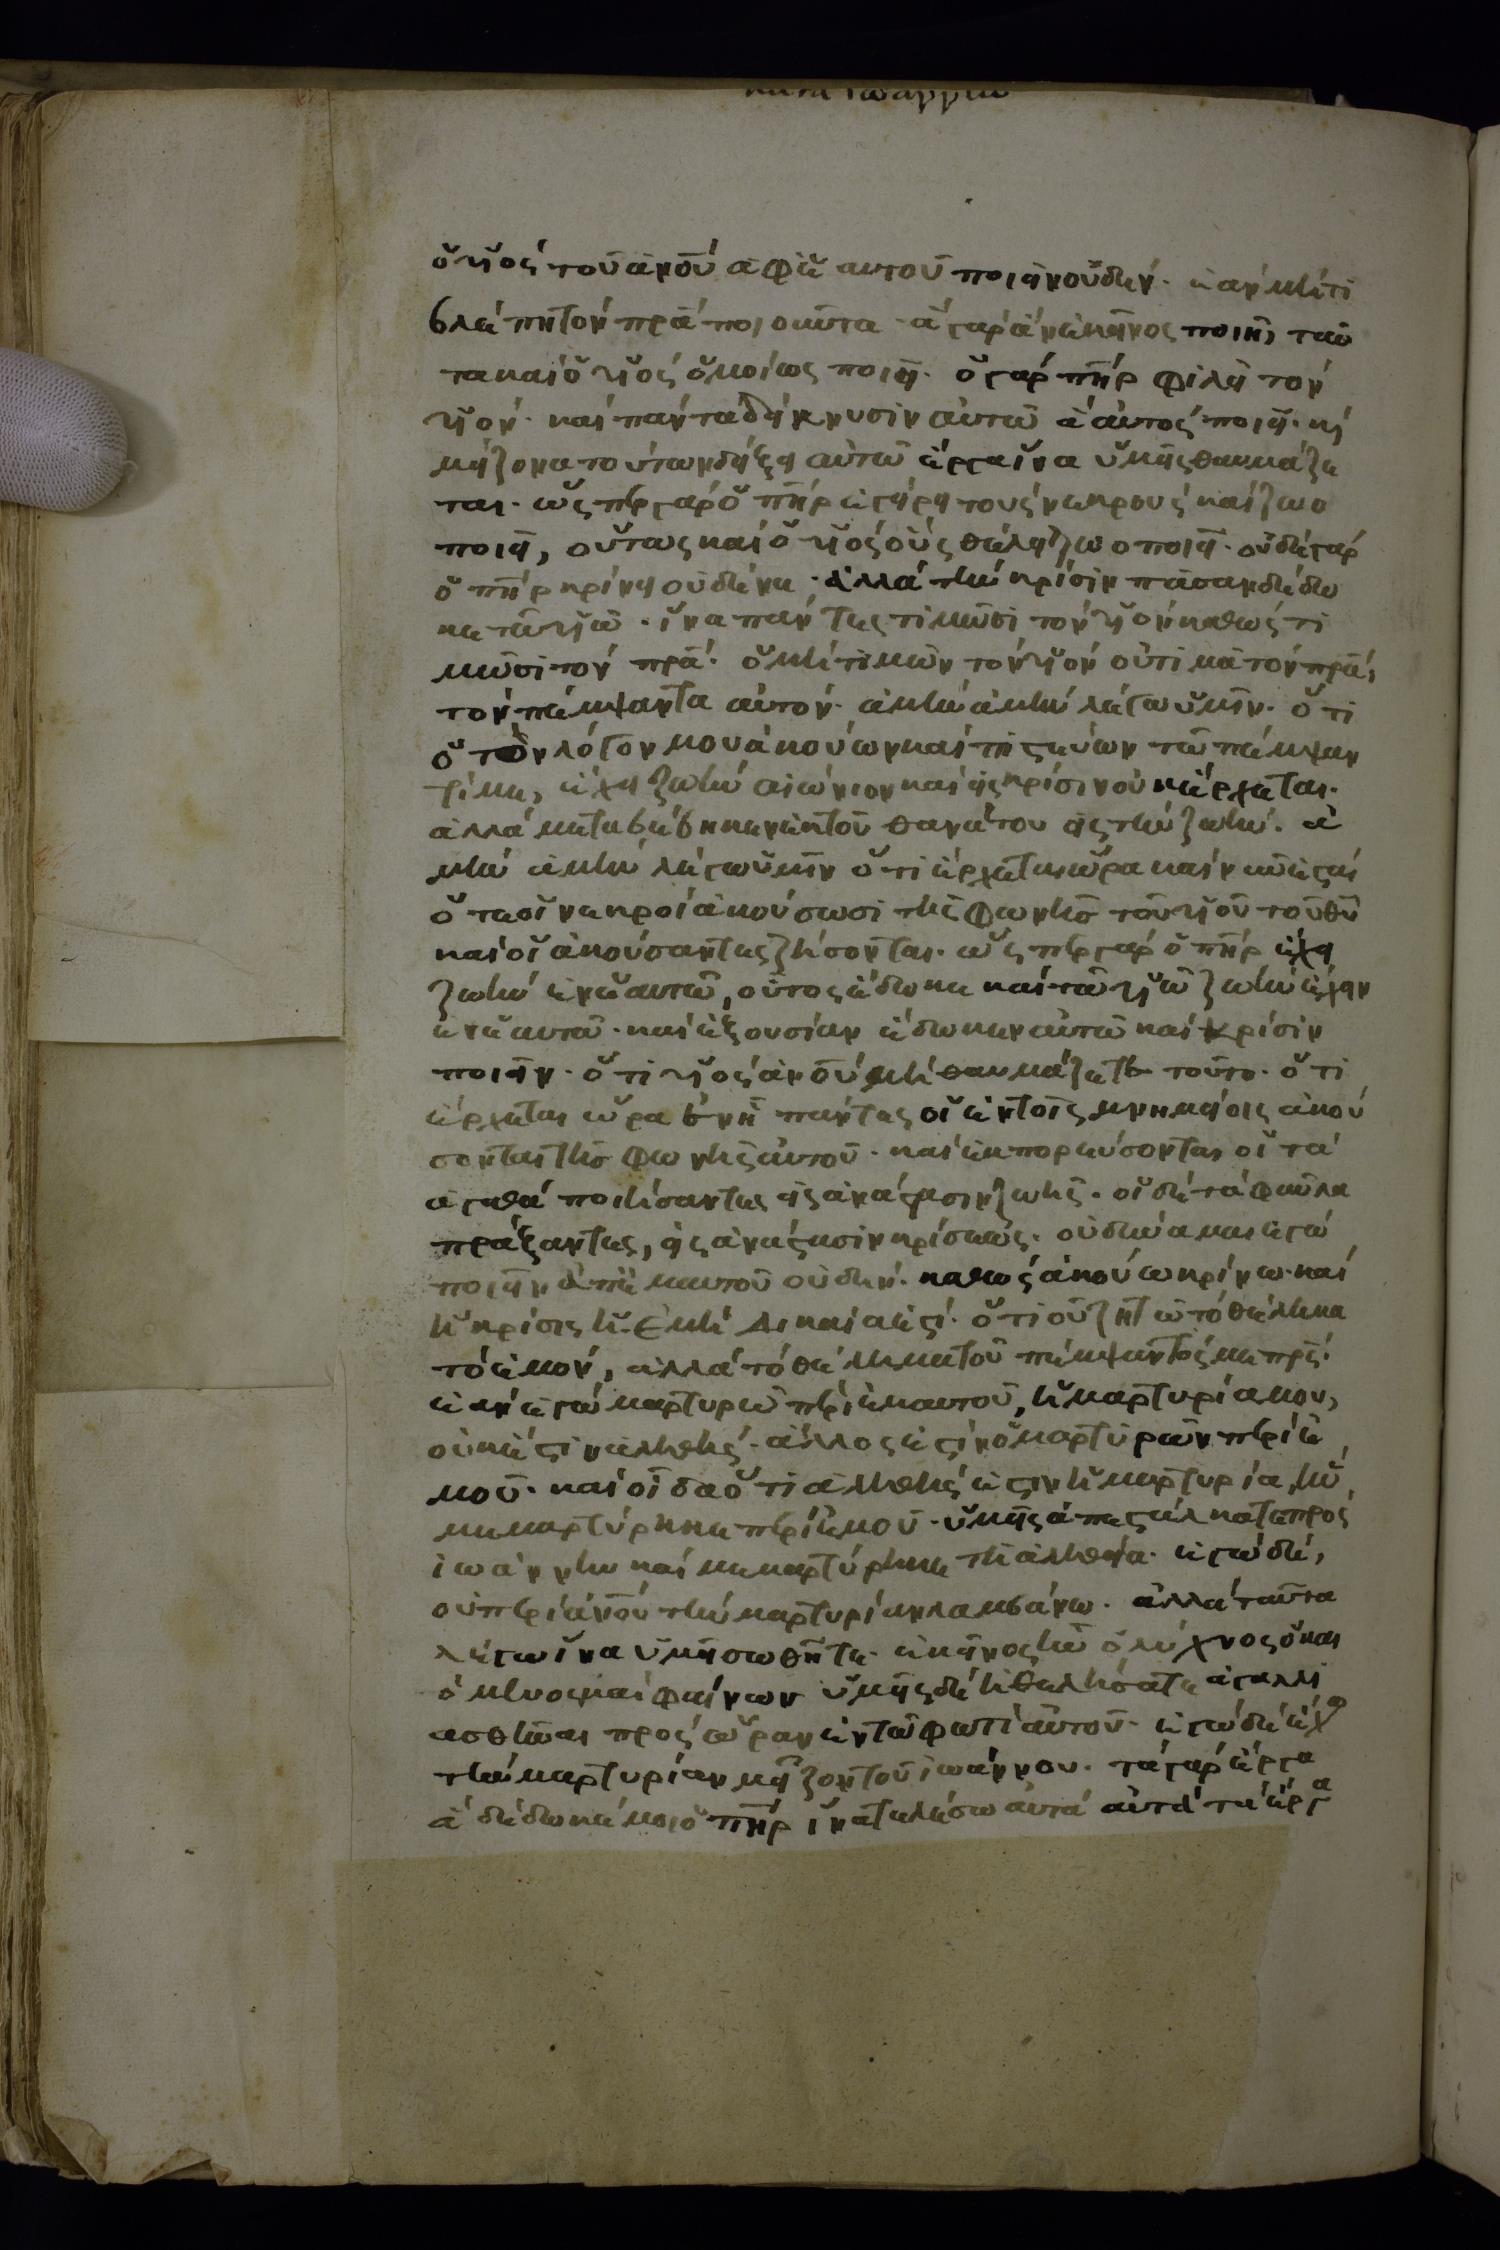 κατα ιωαννην
ὁ υἱὸς τοῦ ἀνου ἀφ' ἑαυτοῦ ποιεῖν οὐδέν· ἐὰν μή τι
βλέπη τὸν πρα ποιοῦντα· ἃ γὰρ ἂν ἐκεῖνος ποιῆ, ταῦ
τα καὶ ὁ υἱὸς ὁμοίως ποιεῖ· ὁ γὰρ πηρ φιλεῖ τὸν
υἱόν· καὶ πάντα δείκνυσιν αὐτῶ ἃ αὐτὸς ποιεῖ· κὶ
μείζονα τούτων δείξει αὐτῶ ἔργα ἵνα ὑμεῖς θαυμάζη
ται· ὥσπερ γὰρ ὁ πηρ ἐγείρει τοὺς νεκροὺς καὶ ζωο
ποιεῖ, οὕτως καὶ ὁ υἱὸς οὓς θέλει ζωοποιεῖ· οὐδὲ γὰρ
ὁ πηρ κρίνει οὐδένα· ἀλλὰ τὴν κρίσιν πᾶσαν δέδω
κε τῶ υἱῶ· ἵνα πάντες τιμῶσι τὸν υἱὸν καθὼς τι
μῶσι τὸν πρα· ὁ μὴ τιμῶν τὸν υἱὸν οὐ τιμᾶ τὸν πρα,
τὸν πέμψαντα αὐτόν· ἀμὴν ἀμὴν λέγω ὑμῖν· ὅτι
ὁ τὸν λόγον μου ἀκούων καὶ πιστεύων τῶ πέμψαν
τί με, ἔχει ζωὴν αἰώνιον καὶ εἰς κρίσιν οὐκ ἔρχεται·
ἀλλὰ μεταβέβηκεν ἐκ τοῦ θανάτου εἰς τὴν ζωήν· ἀ
μὴν ἀμὴν λέγω ὑμῖν ὅτι ἔρχεται ὥρα καὶ νῦν ἐστὶ
ὅτε οἱ νεκροὶ ἀκούσωσι τῆς φωνῆς τοῦ υἱοῦ τοῦ θυ
καὶ οἱ ἀκούσαντες ζήσονται· ὥσπερ γὰρ ὁ πηρ ἔχει
ζωὴν ἐν ἑαυτῶ, οὕτος ἔδωκε καὶ τῶ υἱῶ ζωὴν ἔχειν
ἐν ἑαυτῶ· καὶ ἐξουσίαν ἔδωκεν αὐτῶ καὶ κρίσιν
ποιεῖν· ὅτι υἱὸς ἀνου· μὴ θαυμάζετε τοῦτο· ὅτι
ἔρχεται ὥρα ἐν ἧ πάντες οἱ ἐν τοῖς μνημείοις ἀκού
σονται τῆς φωνῆς αὐτοῦ· καὶ ἐκπορεύσονται οἱ τὰ
ἀγαθὰ ποιήσαντες εἰς ἀνάστασιν ζωῆς· οἱ δὲ τὰ φαῦλα
πράξαντες, εἰς ἀνάστασιν κρίσεως· οὐ δύναμαι ἐγὼ
ποιεῖν ἀπ' ἐμαυτοῦ οὐδέν· καθὼς ἀκούω κρίνω· καὶ
ἡ κρίσις ἡ ἐμὴ δικαία ἐστί· ὅτι οὐ ζητῶ τὸ θέλημα
τὸ ἐμόν, ἀλλὰ τὸ θέλημα τοῦ πέμψαντός με πρς·
ἐὰν ἐγὼ μαρτυρῶ περὶ ἐμαυτοῦ, ἡ μαρτυρία μου,
οὐκ ἔστιν ἀληθής· ἄλλος ἐστὶν ὁ μαρτυρῶν περὶ ἐ
μοῦ· καὶ οἶδα ὅτι ἀληθής ἐστιν ἡ μαρτυρία, ἣν
μεμαρτύρηκε περὶ ἐμοῦ· ὑμεῖς ἀπεστάλκατε πρὸς
ἰωάννην καὶ μεμαρτύρηκε τῆ ἀληθεία· ἐγὼ δὲ,
οὐ περὶ ἀνου τὴν μαρτυρίαν λαμβάνω· ἀλλὰ ταῦτα
λέγω ἵνα ὑμεῖ σωθῆτε· ἐκεῖνος ἦν ὁ λύχνος ὁ και
όμενος καὶ φαίνων ὑμεῖς δὲ ἠθελήσατε ἀγαλλι
ασθῆναι πρὸς ὥραν ἐν τῶ φωτὶ αὐτοῦ· ἐγὼ δὲ ἔχω
τὴν μαρτυρίαν μείζον τοῦ ἰωάννου· τὰ γὰρ ἔργα
ἃ δέδωκέ μοι ὁ πηρ ἵνα τελέσω αὐτά αὐτὰ τὰ ἔργα